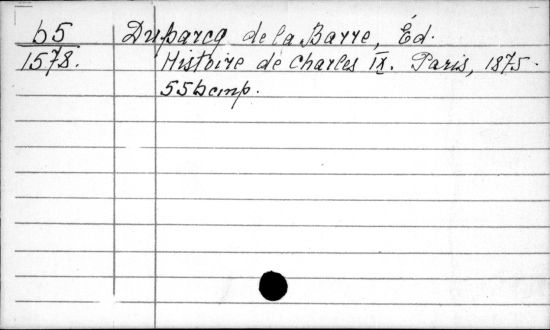 65 Duparcq de la Barre, Éd.
1578. Histoire de Charles IX. Paris, 1875.